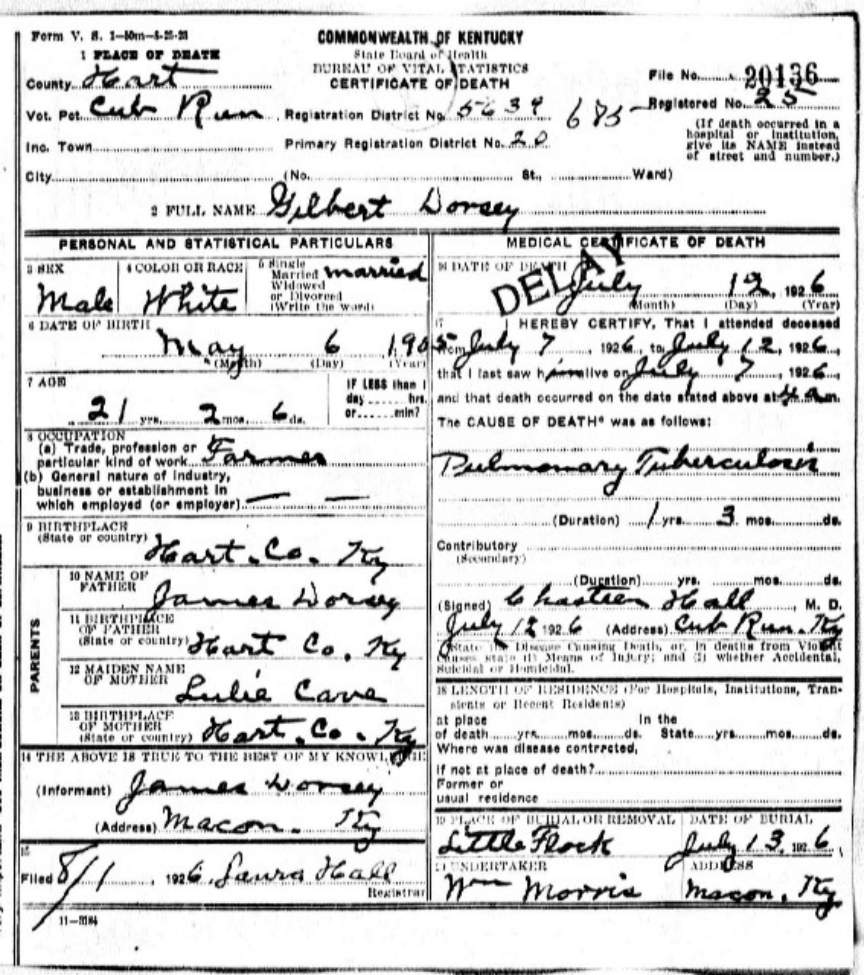 Form V. S. 1-50m-5-25-23
COMMONWEALTH OF KENTUCKY
State Board of Health
BUREAU OF VITAL STATISTICS
CERTIFICATE OF DEATH
1 PLACE OF DEATH
County Hart
File No. 20136
Vot. Pct. Cub Run Registration District No. 5639 685 Registered No. 25
Inc. Town Primary Registration District No. 20
(If death occurred in a hospital or institution, give its NAME instead of street and number.)
City (No. St., Ward)
2 FULL NAME Gilbert Dorsey
PERSONAL AND STATISTICAL PARTICULARS
3 SEX Male
4 COLOR OR RACE White
5 Single Married Widowed or Divorced (Write the word) married
6 DATE OF BIRTH
May 6 1905
(Month) (Day) (Year)
7 AGE
21 yrs. 2 mos. 6 ds.
IF LESS than 1 day hrs. or min?
8 OCCUPATION
(a) Trade, profession or particular kind of work Farmer
(b) General nature of industry, business or establishment in which employed (or employer) — —
9 BIRTHPLACE
(State or country) Hart. Co. Ky
PARENTS
10 NAME OF FATHER James Dorsey
11 BIRTHPLACE OF FATHER (State or country) Hart Co. Ky
12 MAIDEN NAME OF MOTHER Lulie Cave
13 BIRTHPLACE OF MOTHER (State or country) Hart. Co. Ky
14 THE ABOVE IS TRUE TO THE BEST OF MY KNOWLEDGE
(Informant) James Dorsey
(Address) Macon. Ky
15
Filed 8/1, 1926. Laura Hall
Registrar
11-3184
MEDICAL CERTIFICATE OF DEATH
DELAY
16 DATE OF DEATH
July 12, 1926
(Month) (Day) (Year)
17 I HEREBY CERTIFY, That I attended deceased
from July 7, 1926, to July 12, 1926,
that I last saw him alive on July 7, 1926,
and that death occurred on the date stated above at 4 a m.
The CAUSE OF DEATH* was as follows:
Pulmonary Tuberculosis
(Duration) 1 yrs. 3 mos. ds.
Contributory
(Secondary)
(Duration) yrs. mos. ds.
(Signed) Chasteen Hall, M. D.
July 12 1926 (Address) Cub Run. Ky
*State the Disease Causing Death, or, in deaths from Violent
Causes state (1) Means of Injury; and (2) whether Accidental,
Suicidal or Homicidal.
18 LENGTH OF RESIDENCE (For Hospitals, Institutions, Transients or Recent Residents)
at place of death yrs. mos. ds. In the State yrs. mos. ds.
Where was disease contracted,
if not at place of death?
Former or
usual residence
19 PLACE OF BURIAL OR REMOVAL DATE OF BURIAL
Little Flock July 13, 1926
20 UNDERTAKER ADDRESS
Wm Morris Macon. Ky